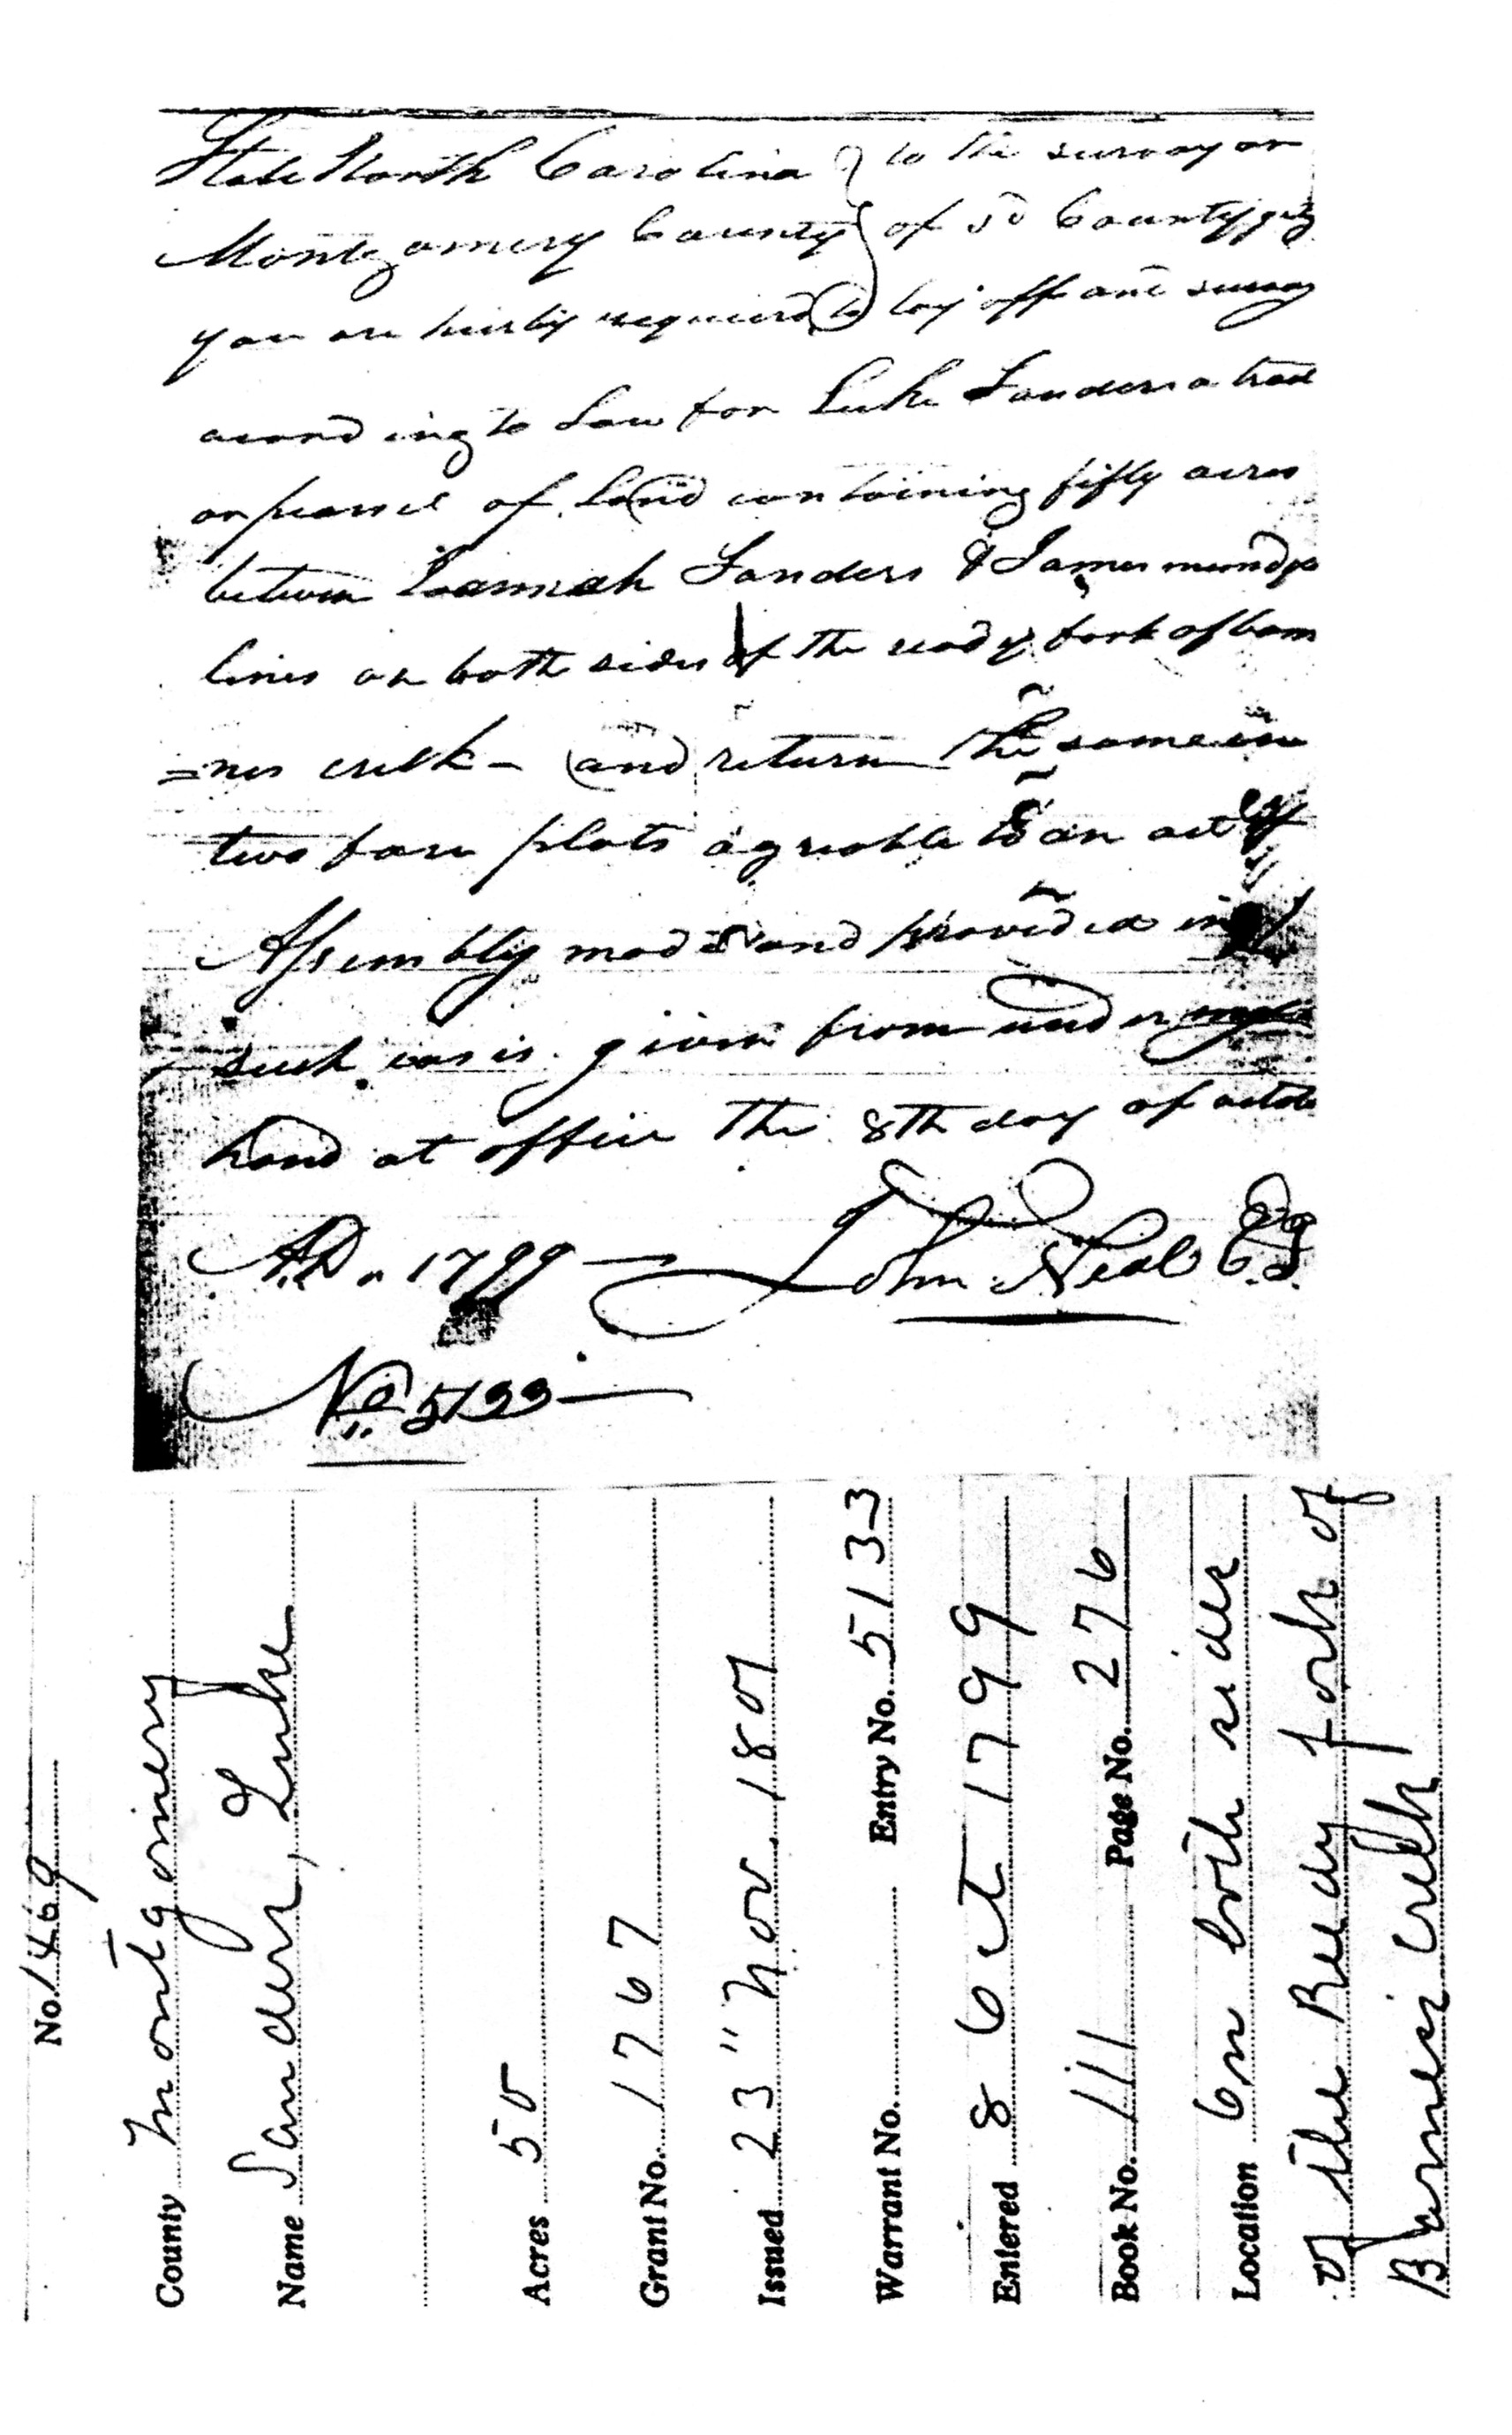 State North Carolina } to the survayor
Montgomery County } of sd County greting
you are hierby required to lay off and survay
acord ing to Law for Luke Sanders a tract
or pearsel of Land containing fifty acres
between Sanders & James
lines on both sides of the ready fork of barn
=nes creek - and return the same in
two fare plats agreable to an act of
Assembly made and provided in
such cases. given from under my
hand at office the 8th day of octobe
A.D. 1799 — John Neal
No 5133 —
No. 1469
County Montgomery
Name Sanders, Luke
Acres 50
Grant No. 1767
Issued 23" Nov. 1801
Warrant No. Entry No. 5133
Entered 8 Oct 1799
Book No. 111 Page No. 276
Location On both sides
of the Reedy fork of
Barnes Creek